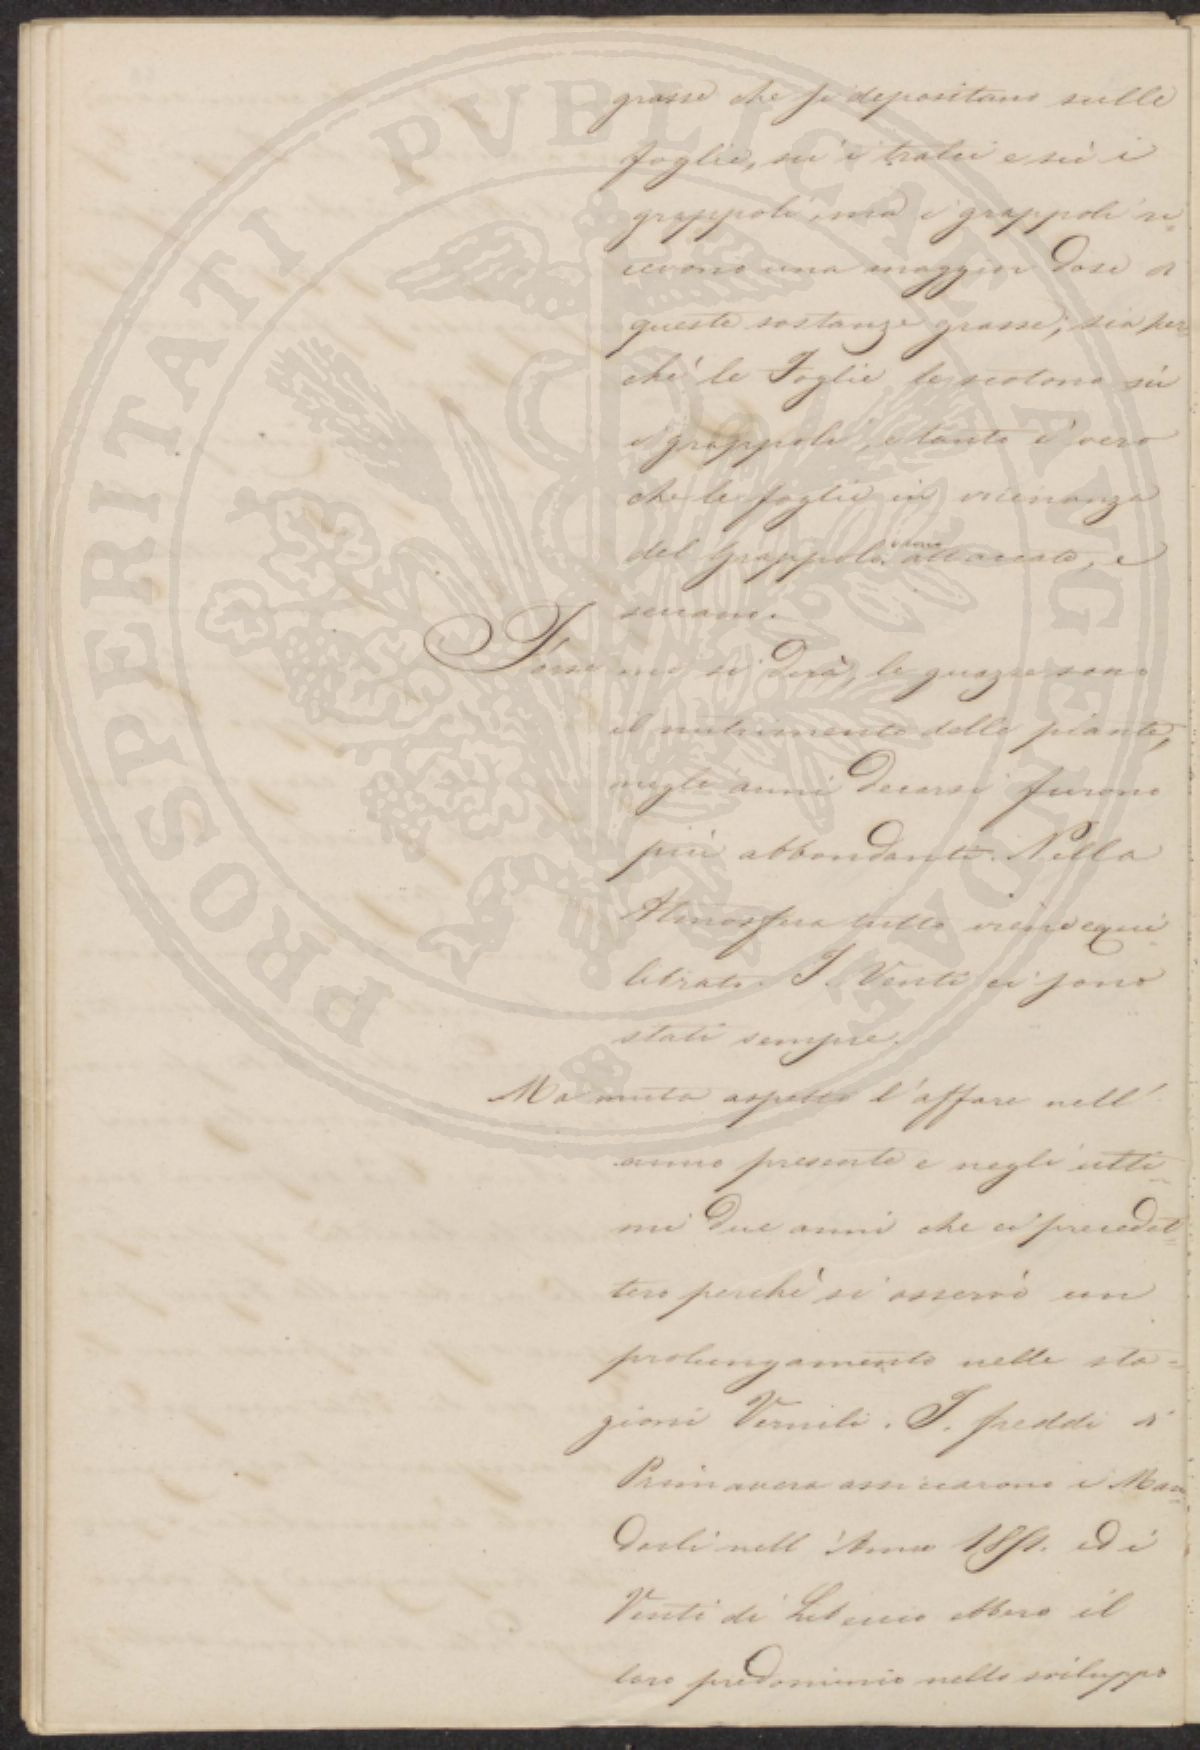 PROSPERITATI PVBLICAE AVGENDAE
grasse che si depositano sulle
foglie, su i tralci e sù i
grappoli, ma i grappoli ri=
cevono una maggior dose di
queste sostanze grasse; sia per=
chè le Foglie le scotono sù
i grappoli, e tanto è vero
che le foglie in vicinanza
del Grappolo attaccato, e
seccano.
Forse mi si dirà, le guazze sono
il nutrimento delle piante,
negli anni decorsi furono
più abbondanti. Nella
Atmosfera tutto viene equi=
librato. I Venti ci sono
stati sempre.
Ma muta aspetto l'affare nell'
anno presente e negli ulti=
mi due anni che ci precedet=
tero perchè si osservò un
prolungamento nelle sta=
gioni Vernili. I freddi di
Primavera assiccarono i Man=
dorli nell'Anno 1851. ed i
Venti di Libeccio ebbero il
loro predominio nello sviluppo